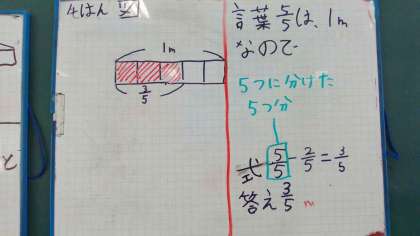 4はん 図
1m
3/5
言葉 5/5は、1m
なので
5つに分けた
5つ分
式 5/5 - 2/5 = 3/5
答え 3/5 m
と